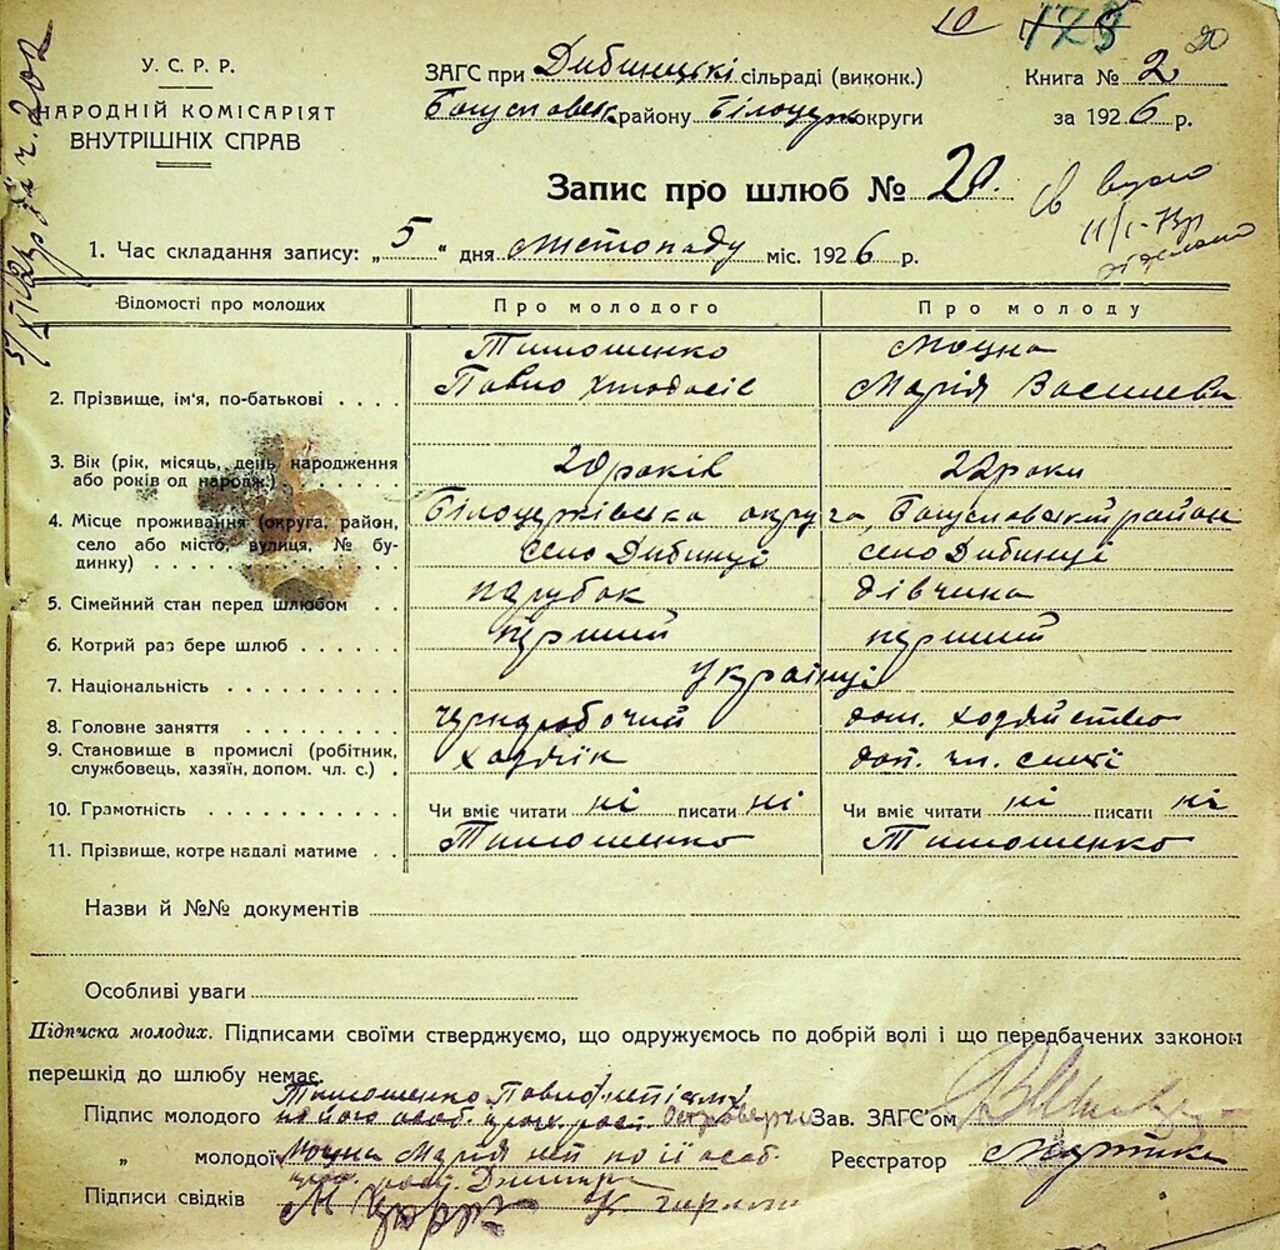 10 178 20
У. С. Р. Р.
НАРОДНІЙ КОМІСАРІЯТ
ВНУТРІШНІХ СПРАВ
ЗАГС при Дибинецькі сільраді (виконк.)
Богуславськ району Білоцерк округи
Книга № 2
за 1926 р.
Запис про шлюб № 20.
11/I-73р
1. Час складання запису: „5“ дня листопаду міс. 1926 р.
Відомості про молодих Про молодого Про молоду
Тимошенко Моцна
2. Прізвище, ім'я, по-батькові . . . . Павло Марія Василева
3. Вік (рік, місяць, день народження
або років од народж.) . . . . . . 20 років 22 роки
4. Місце проживання (округа, район,
село або місто, вулиця, № бу-
динку) . . . . . . . . . . .
Білоцерківська округа, Богуславський район
село Дибинці село Дибинці
5. Сімейний стан перед шлюбом . . парубок дівчина
6. Котрий раз бере шлюб . . . . . . перший перший
7. Національність . . . . . . . . . . українці
8. Головне заняття . . . . . . . . . чорноробочий дом. хозяйство
9. Становище в промислі (робітник,
службовець, хазяїн, допом. чл. с.) . хозяїн доп. чл. сем'ї
10. Грамотність . . . . . . . . . . . Чи вміє читати ні писати ні Чи вміє читати ні писати ні
11. Прізвище, котре надалі матиме . . Тимошенко Тимошенко
Назви й №№ документів
Особливі уваги
Підписка молодих. Підписами своїми стверджуємо, що одружуємось по добрій волі і що передбачених законом
перешкід до шлюбу немає.
Тимошенко Павло
Підпис молодого по його особ. Зав. ЗАГС'ом
„ молодої Моцна Марія по її особ. Реєстратор
Підписи свідків